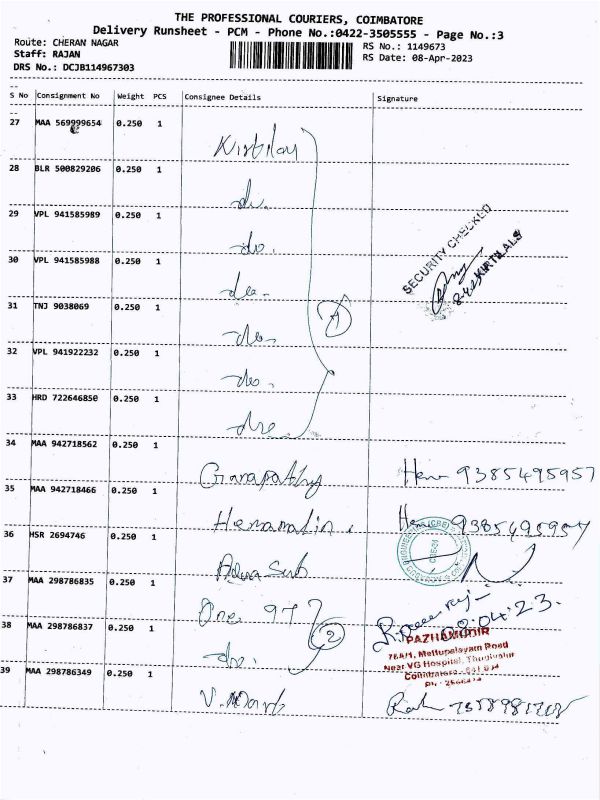 THE PROFESSIONAL COURIERS, COIMBATORE
Delivery Runsheet - PCM - Phone No.:0422-3505555 - Page No.:3
Route: CHERAN NAGAR
Staff: RAJAN
DRS No.: DCJB114967303
RS No.: 1149673
RS Date: 08-Apr-2023
S No Consignment No Weight PCS Consignee Details Signature
27 MAA 569999654 0.250 1
28 BLR 500829206 0.250 1
do.
29 VPL 941585989 0.250 1
do.
SECURITY CHECKED
30 VPL 941585988 0.250 1
KIRTILALS
do.
31 TNJ 9038069 0.250 1
7
do.
32 VPL 941922232 0.250 1
do.
33 HRD 722646850 0.250 1
34 MAA 942718562 0.250 1
Ganapathy 9385495957
35 MAA 942718466 0.250 1
Hemamalin. 9385495957
36 HSR 2694746 0.250 1
37 MAA 298786835 0.250 1
One 97
38 MAA 298786837 0.250 1
2
PAZHAMUDIR
do.
Near VG Hospital,
39 MAA 298786349 0.250 1